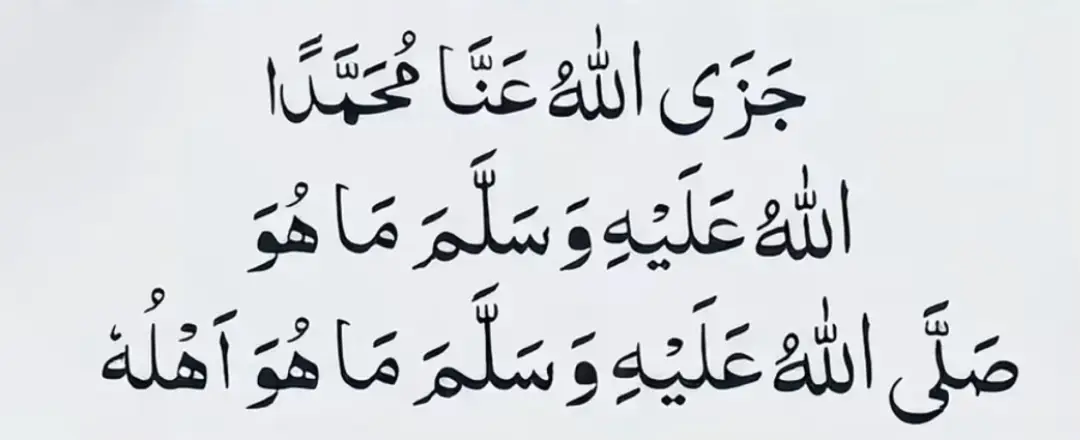 جَزَى اللّٰهُ عَنَّا مُحَمَّدًا
اللّٰهُ عَلَيْهِ وَسَلَّمَ مَا هُوَ
صَلَّى اللّٰهُ عَلَيْهِ وَسَلَّمَ مَا هُوَ اَهْلُهٗ